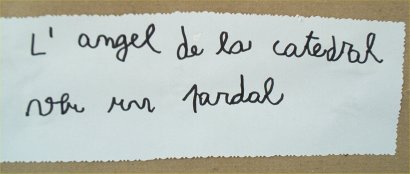 L' angel de la catedral
veu un pardal